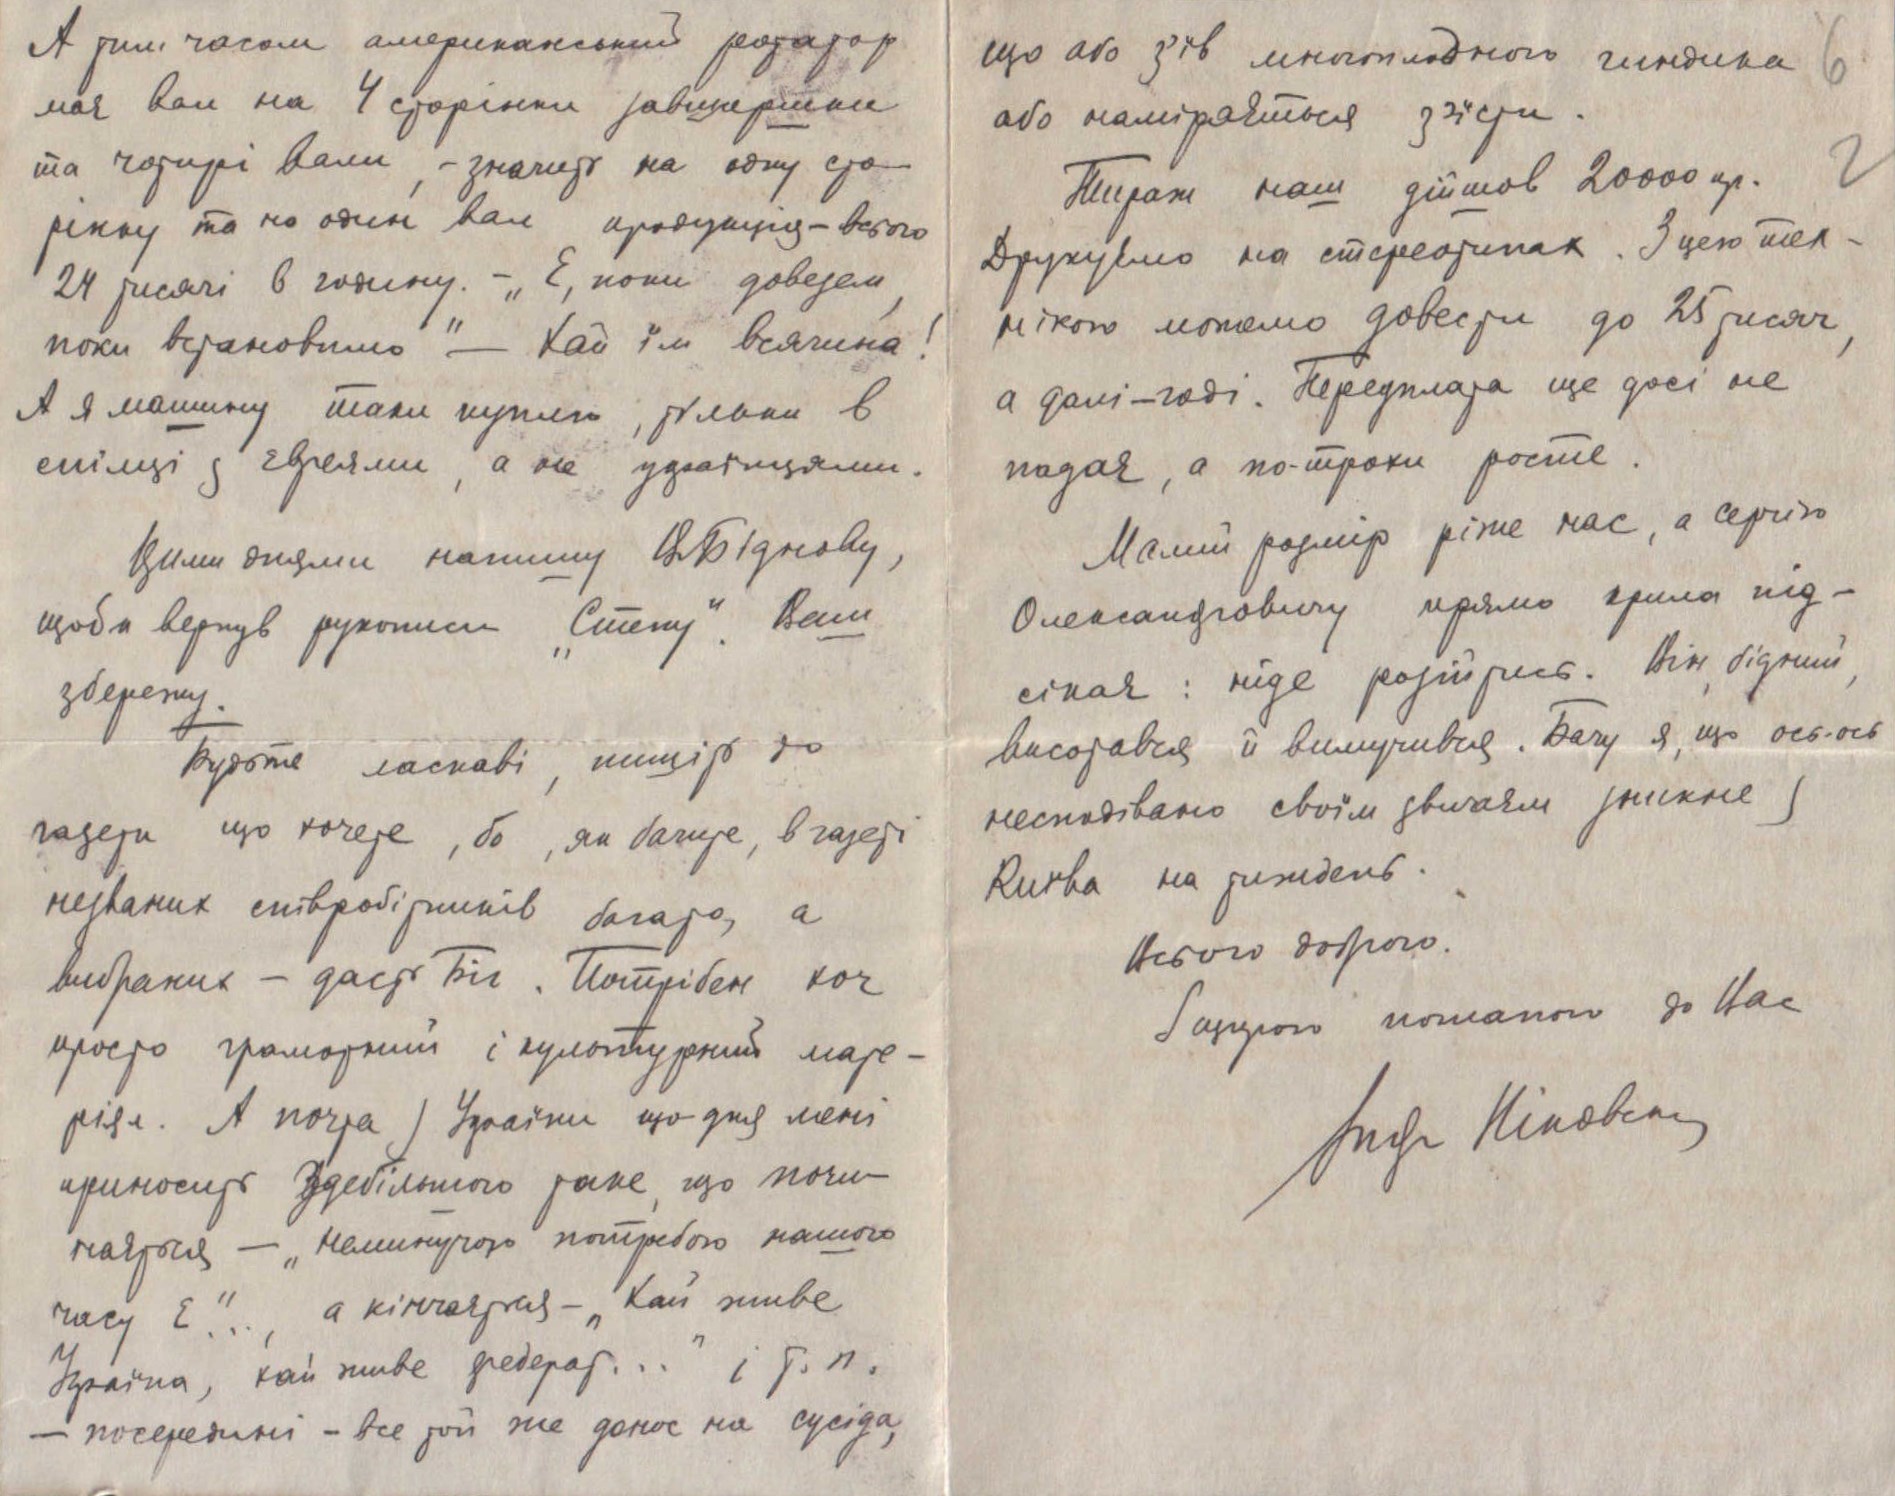 А тим часом американський ротатор
має вал на 4 сторінки завширшки
та чотири вали, – значить на одну сто-
рінку та на один вал продукція – всього
24 тисячі в годину. – „Е, поки довезем,
поки встановимо" – Хай їм всячина!
А я машину таки куплю, тільки в
спілці з євреями, а не українцями.
Цими днями напишу В. Біднову,
щоби вернув рукописи „Степу". Ваш
збережу.
Будьте ласкаві, пишіть до
газети що хочете, бо, як бачите, в газеті
незваних співробітників багато, а
вибраних – дасть Біг. Потрібен хоч
просто грамотний і культурний мате-
ріял. А почта з України що-дня мені
приносить здебільшого таке, що почи-
наяться – „неминучою потребою нашого
часу Е"..., а кінчаяться – „Хай живе
Україна, хай живе федерат..." і т. п.
– посередині – все той же донос на сусіда,
що або з'їв многоплодного гиндика
або наміряється з'їсти.
Тираж наш дійшов 20000 пр.
Друкуємо на стереотипах. З цею тех-
нікою можемо довести до 25 тисяч,
а далі – годі. Передплата ще досі не
падає, а по-трохи росте.
Малий розмір ріже нас, а Сергію
Олександровичу прямо крила під-
сікає: ніде розійтись. Він, бідний,
висотався й вимучився. Бачу я, що ось-ось
несподівано своїм звичаєм зникне з
Києва на тиждень.
Всього доброго.
З щирою пошаною до Вас
Андр Ніковський
6
2